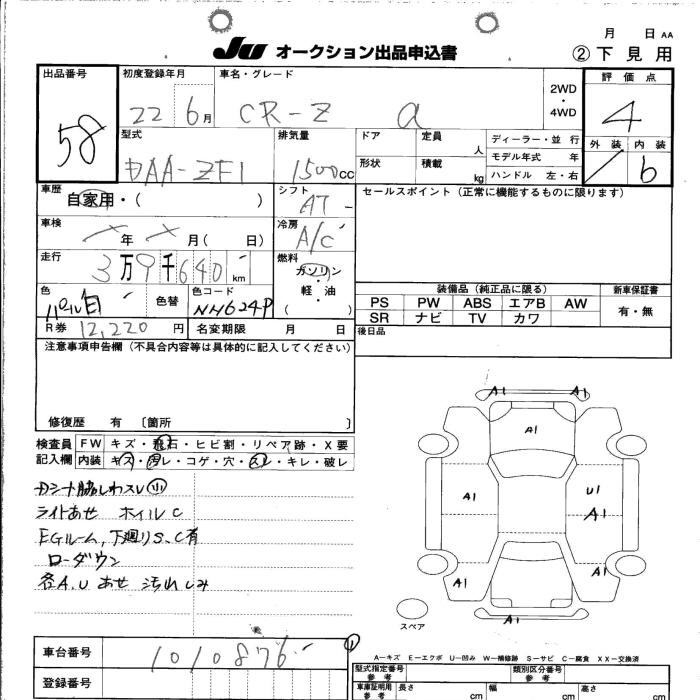 月 日 AA
JU オークション出品申込書 ②下見用
出品番号 58
初度登録年月 22 6月
車名・グレード CR-Z α
2WD・4WD
評価点 4
外装 内装 6
型式 DAA-ZF1
排気量 1500cc
ドア 定員 人
形状 積載 kg
ディーラー・並行
モデル年式 年
ハンドル 左・右
車歴 自家用・( )
シフト AT
セールスポイント(正常に機能するものに限ります)
車検 年 月( 日)
冷房 A/C
走行 3万9千640km
燃料 ガソリン・軽・油 ( )
色 パール白 色替
色コード NH624P
装備品(純正品に限る) 新車保証書
PS PW ABS エアB AW 有・無
SR ナビ TV カワ
R券 12,220円 名変期限 月 日
後日品
注意事項申告欄(不具合内容等は具体的に記入してください)
修復歴 有 〔箇所 〕
検査員記入欄
FW キズ・飛石・ヒビ割・リペア跡・X要
内装 キズ・汚レ・コゲ・穴・スレ・キレ・破レ
Dシート脇しわスレ小
ライトあせ ホイルC
EGルーム、下廻りS、C有
ローダウン
各A.U あせ 汚れしみ
A1 A1
A1
A1 U1
A1
A1 A1
A1
スペア
車台番号 1010876
登録番号
A-キズ E-エクボ U-凹み W-補修跡 S-サビ C-腐食 XX-交換済
型式指定番号 参考 類別区分番号 参考
車庫証明用 参考 長さ cm 幅 cm 高さ cm